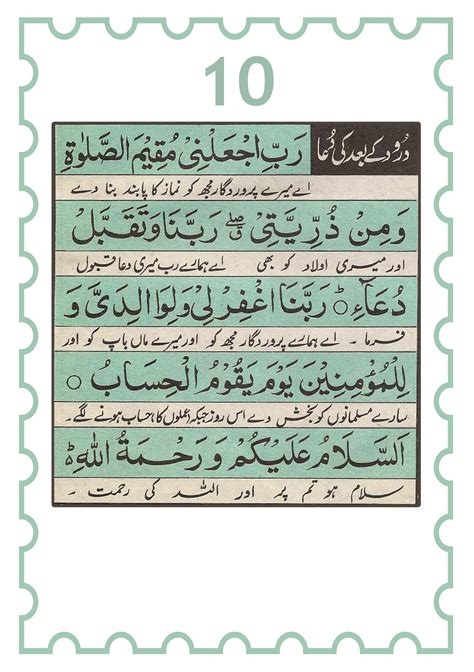 10
درود کے بعد کی دُعا
رَبِّ اجْعَلْنِیْ مُقِیْمَ الصَّلٰوةِ
اے میرے پروردگار مجھ کو نماز کا پابند بنا دے
وَمِنْ ذُرِّیَّتِیْ ۖ رَبَّنَا وَتَقَبَّلْ
اور میری اولاد کو بھی اے ہمارے رب میری دعا قبول
دُعَآءِ ○ رَبَّنَا اغْفِرْ لِیْ وَلِوَالِدَیَّ وَ
فرما ۔ اے ہمارے پروردگار مجھ کو اور میرے ماں باپ کو اور
لِلْمُؤْمِنِیْنَ یَوْمَ یَقُوْمُ الْحِسَابُ ○
سارے مسلمانوں کو بخش دے اس روز جبکہ عملوں کا حساب ہونے لگے۔
اَلسَّلَامُ عَلَیْکُمْ وَرَحْمَةُ اللهِ ط
سلام ہو تم پر اور اللہ کی رحمت ۔